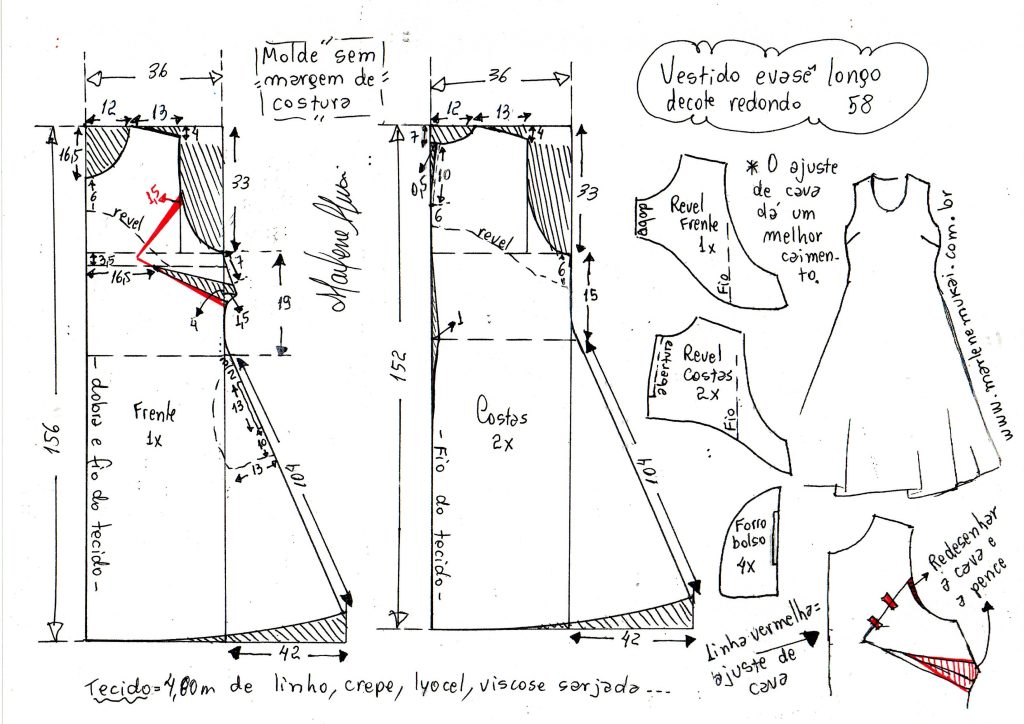 Molde sem
margem de
costura
Vestido evasê longo
decote redondo 58
36
12
13
4
16,5
33
6
revel
1,5
3,5
16,5
7
4
1,5
19
2
13
10
13
104
156
Frente
1x
- dobra e fio do tecido -
42
Marlene Mukai
36
12
13
7
4
0,5
10
33
6
revel
6
15
1
152
Costas
2x
- Fio do tecido -
104
42
dobra
Revel
Frente
1x
Fio
abertura
Revel
Costas
2x
Fio
Forro
bolso
4x
* O ajuste
de cava
dá um
melhor
caimen-
to.
www.marlenemukai.com.br
Redesenhar
a cava e
a pence
Linha vermelha=
ajuste de
cava
Tecido=4,00m de linho, crepe, lyocel, viscose sarjada...